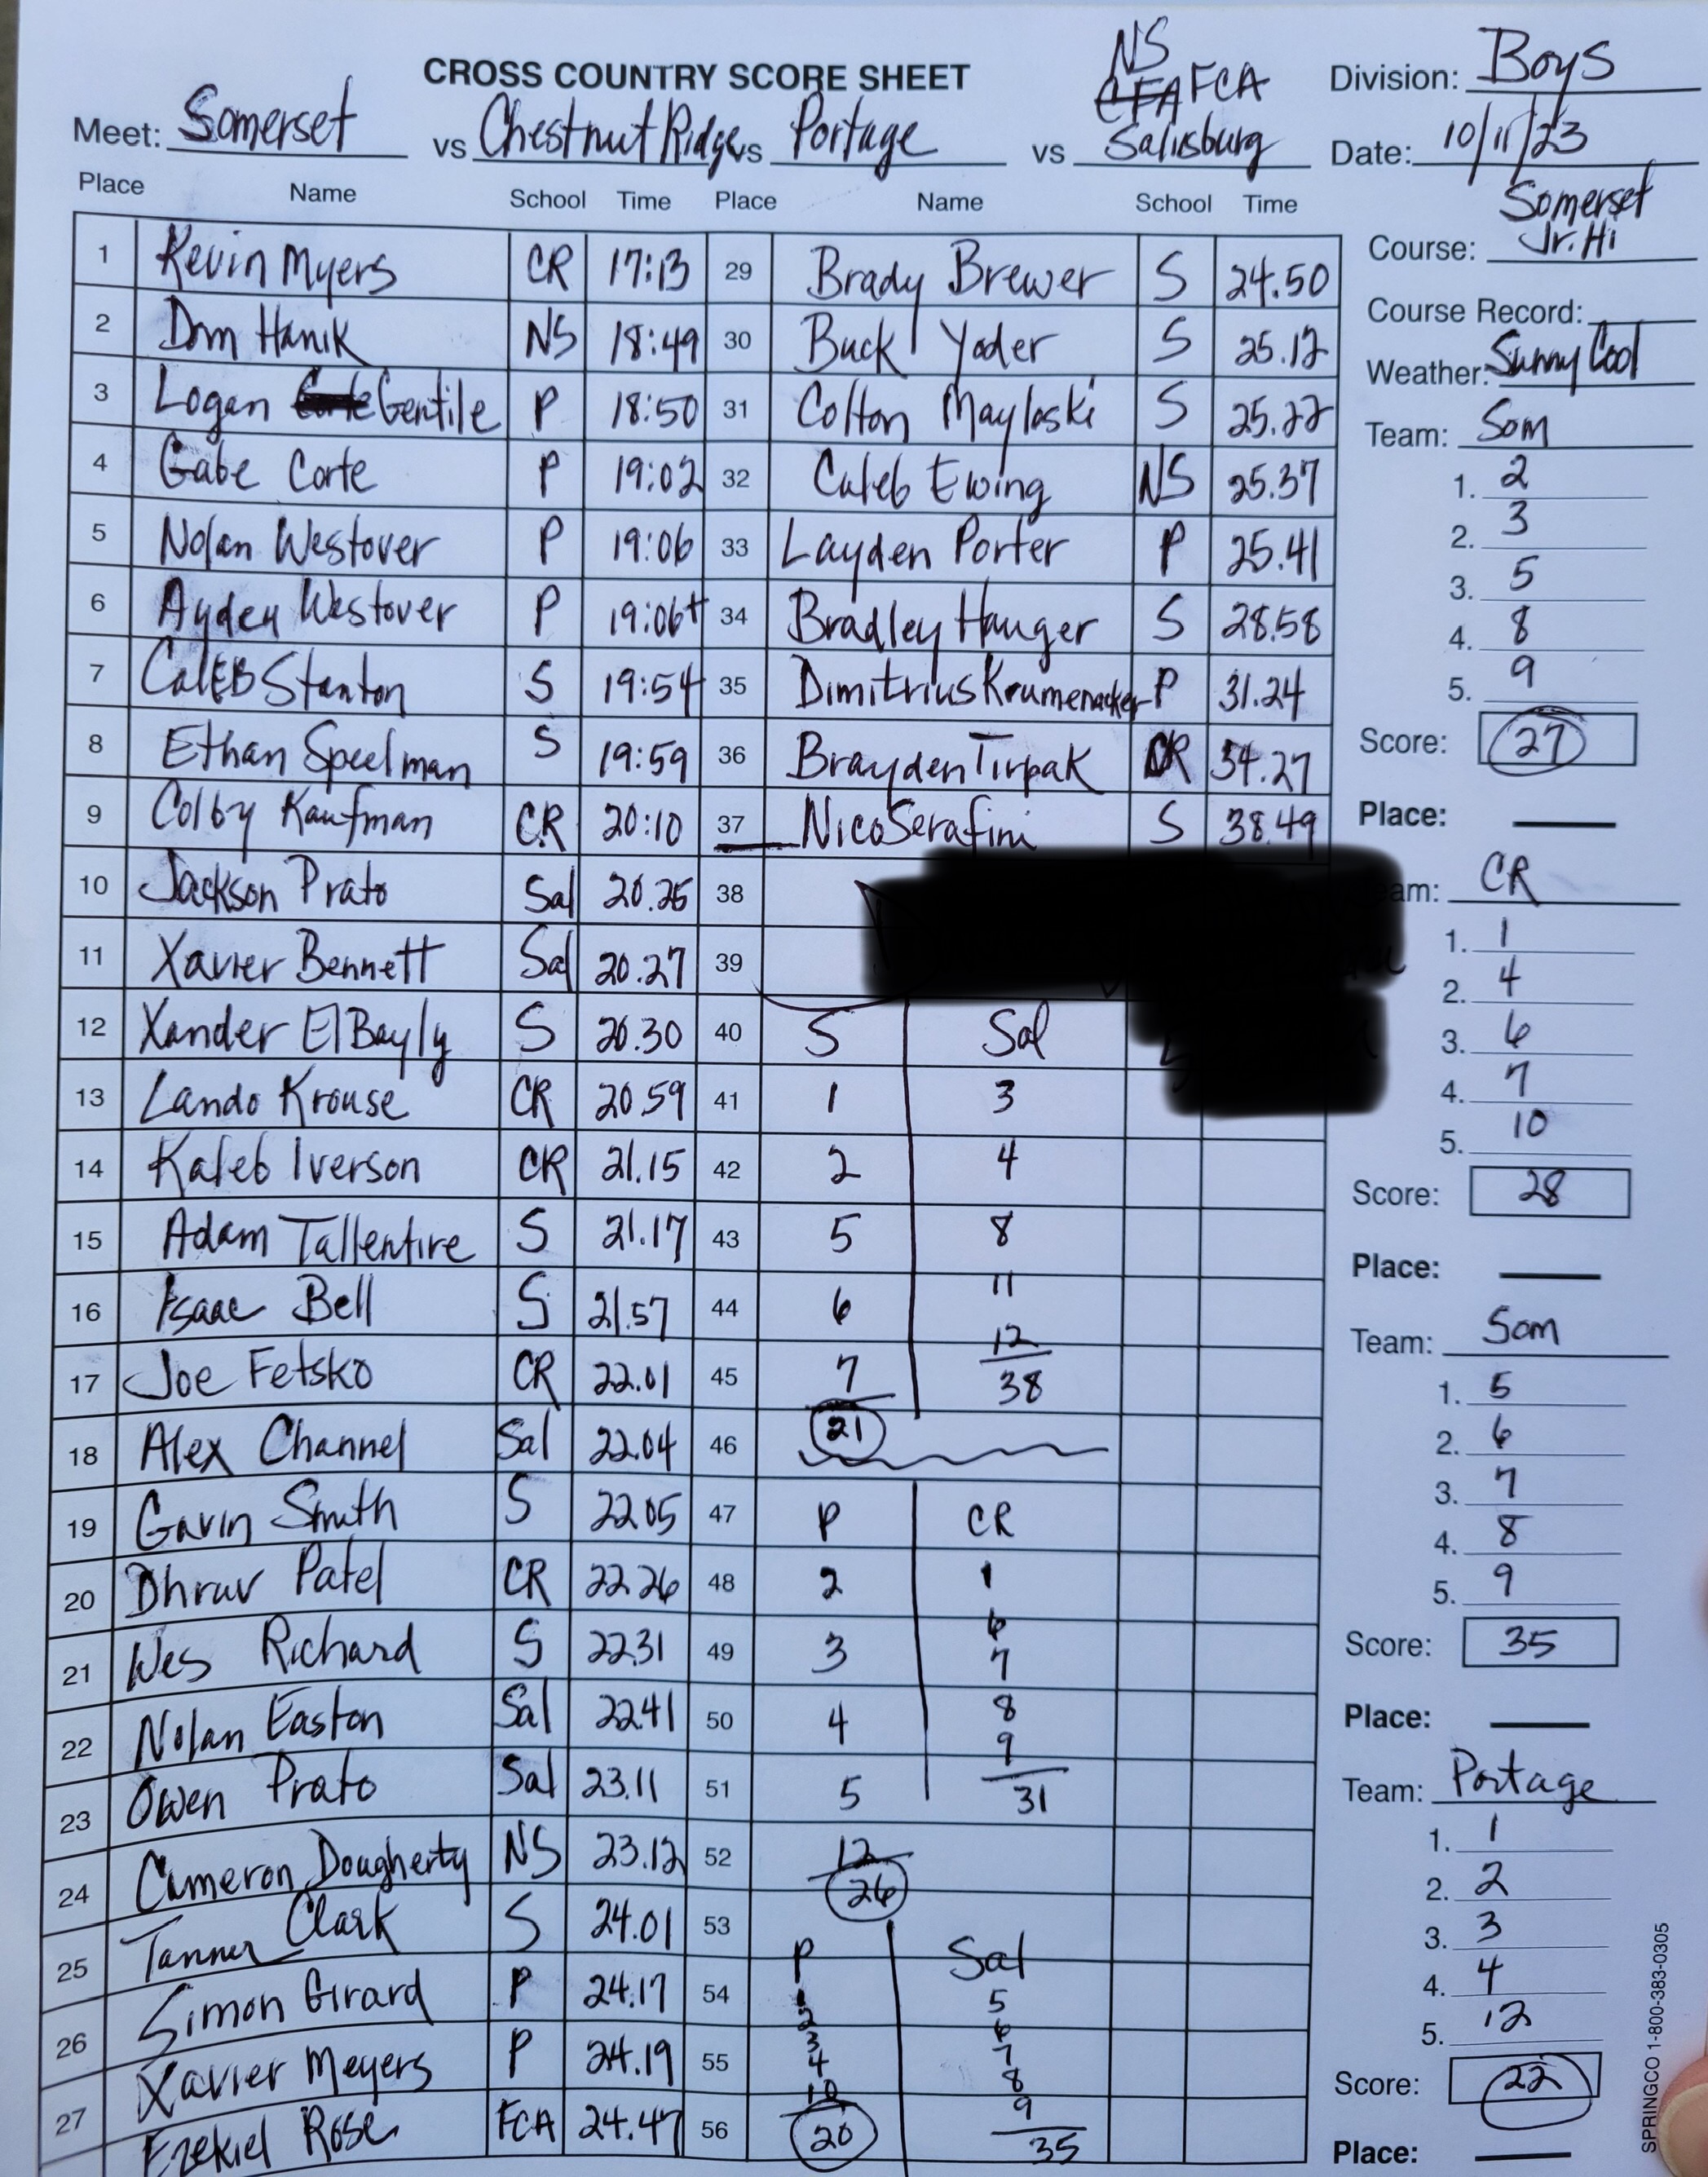 CROSS COUNTRY SCORE SHEET
NS
CFA FCA
Division: Boys
Meet: Somerset vs Chestnut Ridge vs Portage vs Salisburg Date: 10/11/23
Place Name School Time Place Name School Time
Somerset
Jr. Hi
Course:
Course Record:
Weather: Sunny Cool
1 Kevin Myers CR 17:13
2 Dom Hanik NS 18:49
3 Logan Corte Gentile P 18:50
4 Gabe Corte P 19:02
5 Nolan Westover P 19:06
6 Ayden Westover P 19:06+
7 CalEB Stanton S 19:54
8 Ethan Speelman S 19:59
9 Colby Kaufman CR 20:10
10 Jackson Prato Sal 20.25
11 Xavier Bennett Sal 20.27
12 Xander ElBayly S 20.30
13 Lando Krouse CR 20.59
14 Kaleb Iverson CR 21.15
15 Adam Tallentire S 21.17
16 Isaac Bell S 21.57
17 Joe Fetsko CR 22.01
18 Alex Channel Sal 22.04
19 Gavin Smith S 22.05
20 Dhruv Patel CR 22 26
21 Wes Richard S 22.31
22 Nolan Easton Sal 22.41
23 Owen Prato Sal 23.11
24 Cameron Dougherty NS 23.12
25 Tanner Clark S 24.01
26 Simon Girard P 24.17
27 Xavier Meyers P 24.19
Ezekiel Rose FCA 24.47
29 Brady Brewer S 24.50
30 Buck Yoder S 25.12
31 Colton Mayloski S 25.22
32 Caleb Ewing NS 25.37
33 Layden Porter P 25.41
34 Bradley Hauger S 28.58
35 Dimitrius Krumenacker P 31.24
36 Brayden Tirpak CR 34.27
37 Nico Serafini S 38.49
38
39
40 S Sal
41 1 3
42 2 4
43 5 8
44 6 11
12
45 7 38
46 21
47 P CR
48 2 1
6
49 3 7
50 4 8
9
51 5 31
52 12
26
53
P Sal
54 1 5
2 6
3 7
55 4 8
10 9
56 20 35
Team: Som
1. 2
2. 3
3. 5
4. 8
5. 9
Score: 27
Place:
eam: CR
1. 1
2. 4
3. 6
4. 7
5. 10
Score: 28
Place:
Team: Som
1. 5
2. 6
3. 7
4. 8
5. 9
Score: 35
Place:
Team: Portage
1. 1
2. 2
3. 3
4. 4
5. 12
Score: 22
Place:
SPRINGCO 1-800-383-0305